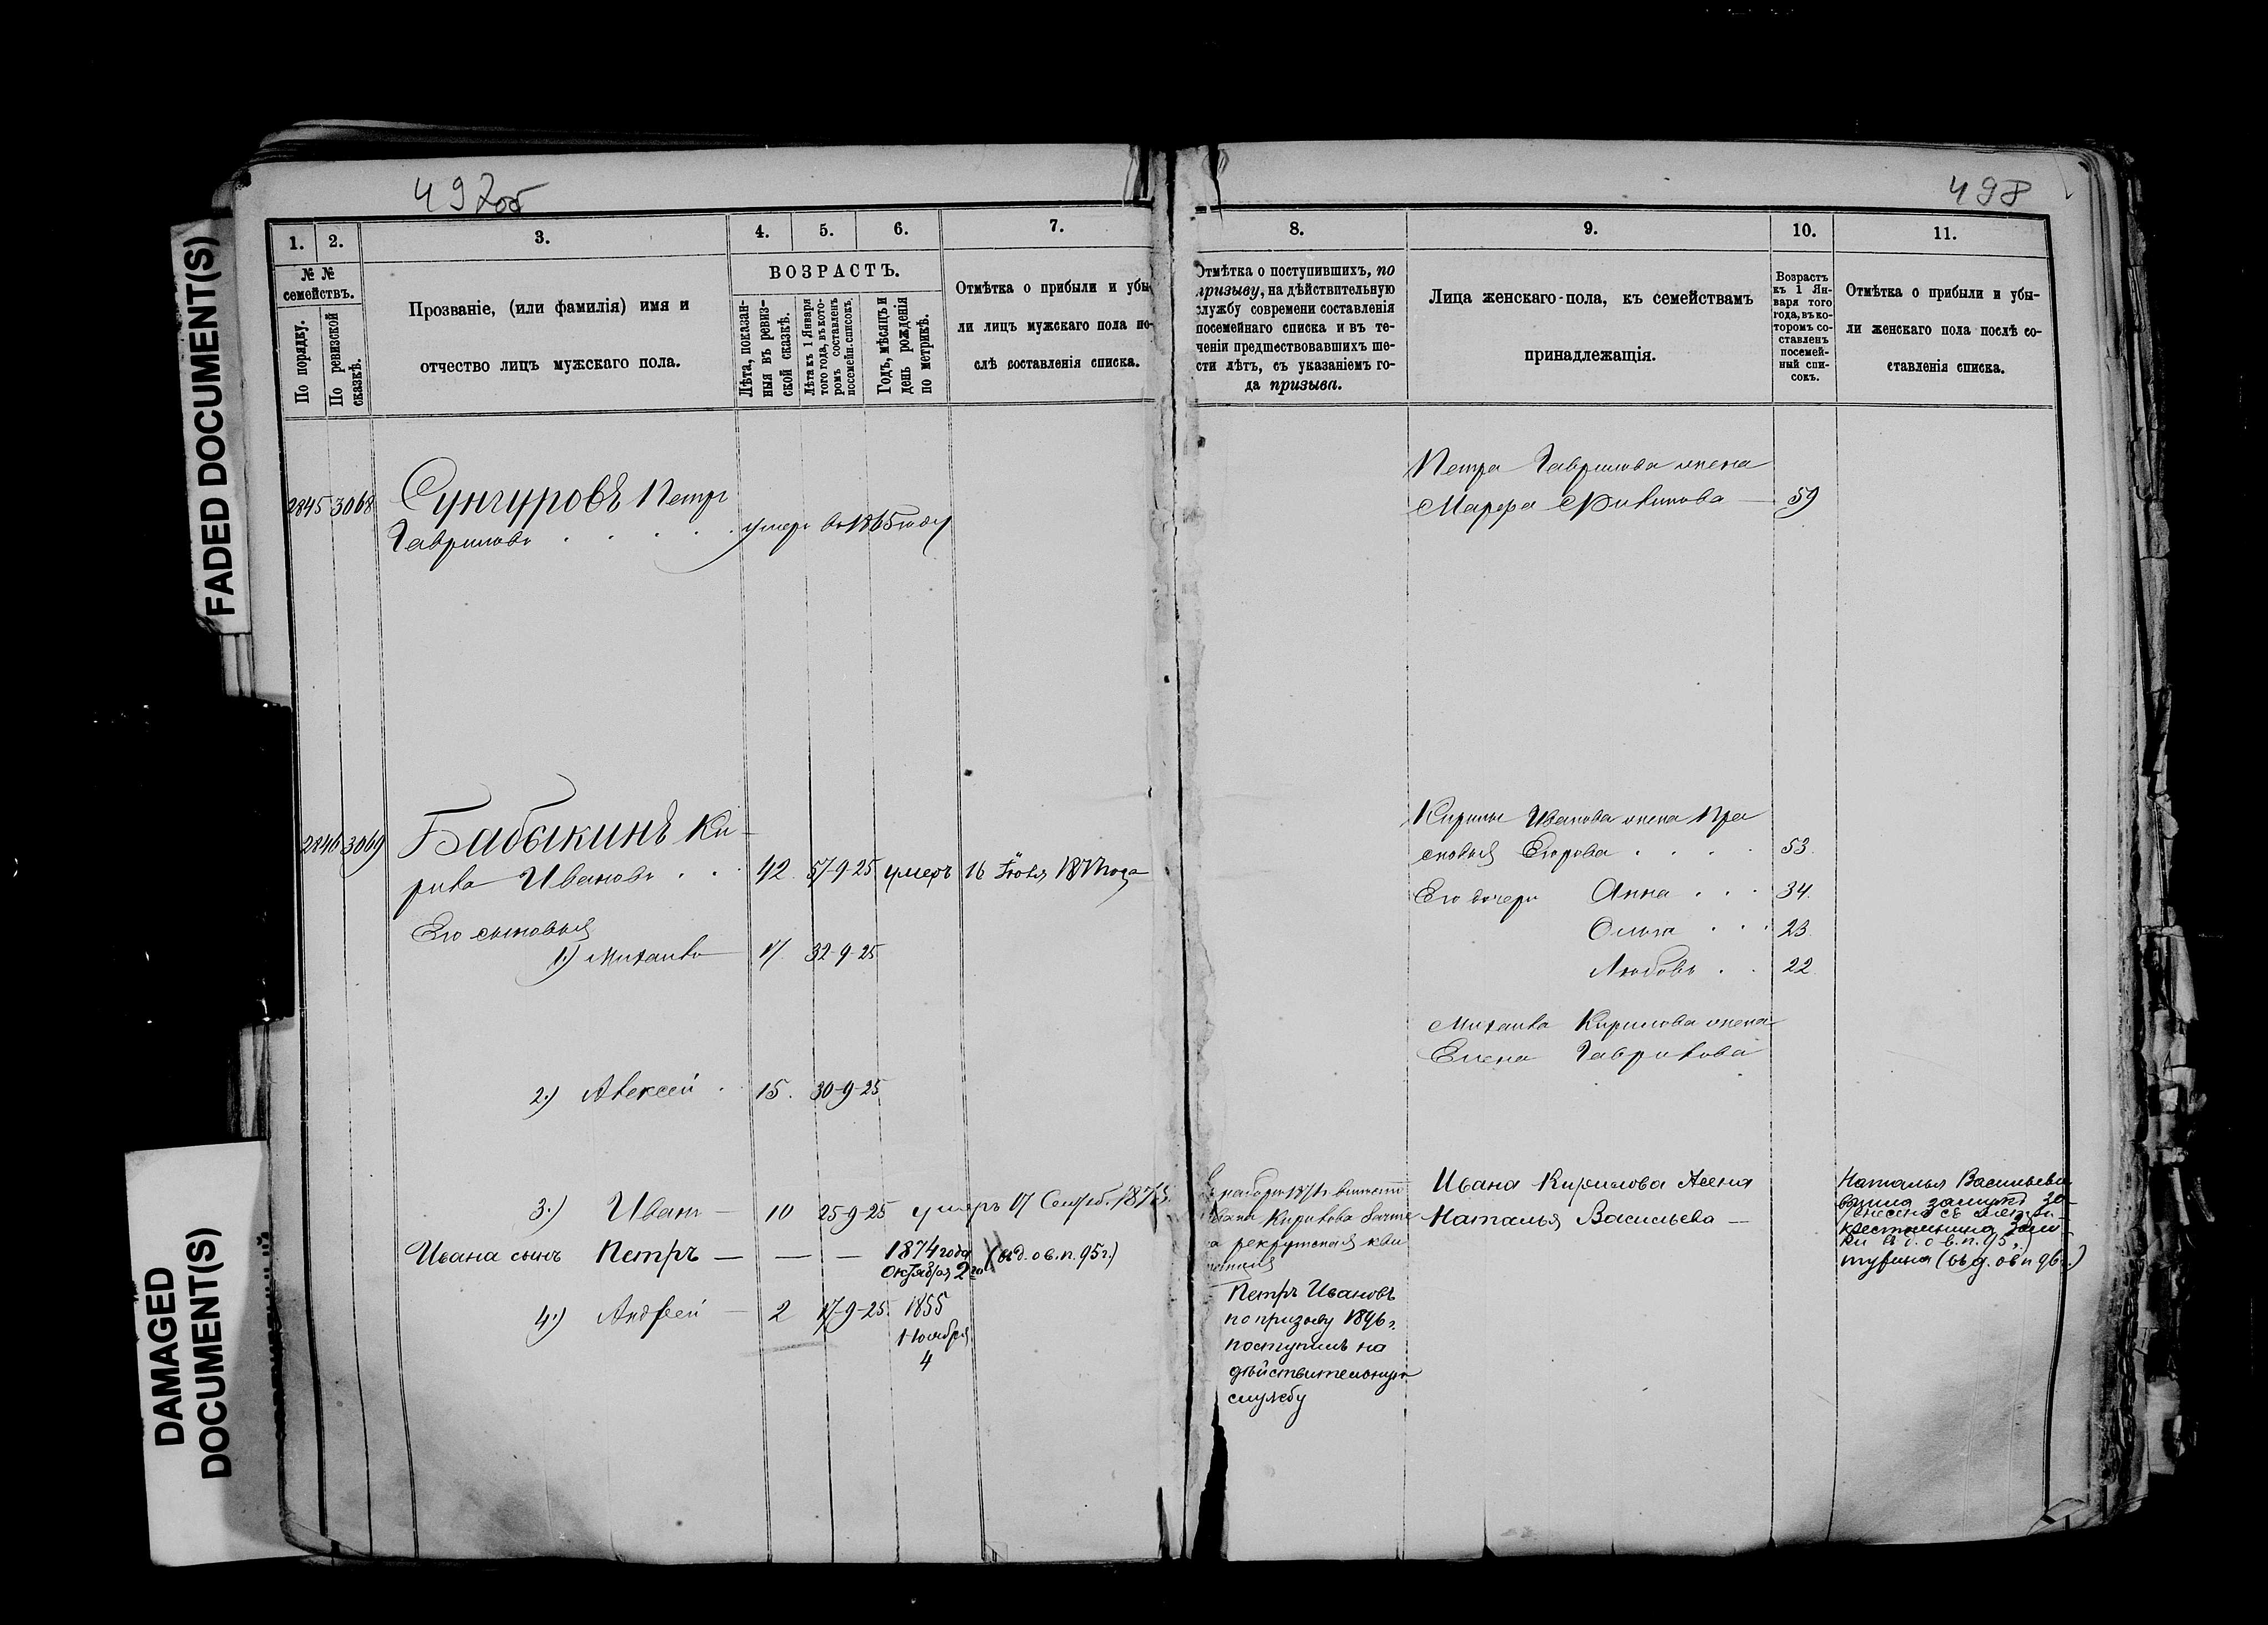 497об
498
1.
2.
3.
4.
5.
6.
7.
№ №
семействъ.
По порядку.
По ревизской
сказкѣ.
Прозваніе, (или фамилія) имя и
отчество лицъ мужскаго пола.
ВОЗРАСТЪ.
Лѣта, показан-
ныя въ ревиз-
ской сказкѣ.
Лѣта къ 1 Января
того года, въ кото-
ромъ составленъ
посемейн. списокъ.
Годъ, мѣсяцъ и
день рожденія
по метрикѣ.
Отмѣтка о прибыли и убы-
ли лицъ мужскаго пола по-
слѣ составленія списка.
2845 3068
Сунгуровъ Петръ
Гавриловъ . . . . . умеръ въ 1865 году
2846 3069
Бабыкинъ Ки-
рила Ивановъ . . 42 57-9-25 умеръ 16 Іюля года
Его сыновья
1.) Михаила 17 32-9-25
2.) Алексей . 15. 30-9-25
3.) Иванъ — 10 25-9-25 умеръ 17 Сентяб.
Ивана сынъ Петръ — — — 1874 года (въ д. о в. п. 95 г.)
Октября 2го
4.) Андрей — 2 17-9-25. 1855
Ноября
4
8.
9.
10.
11.
Отмѣтка о поступившихъ, по
призыву, на дѣйствительную
службу современи составленія
посемейнаго списка и въ те-
ченіи предшествовавшихъ ше-
сти лѣтъ, съ указаніемъ го-
да призыва.
Лица женскаго пола, къ семействамъ
принадлежащія.
Возрастъ
къ 1 Ян-
варя того
года, въ ко-
торомъ со-
ставленъ
посемей-
ный спи-
сокъ.
Отмѣтка о прибыли и убы-
ли женскаго пола послѣ со-
ставленія списка.
Петра Гаврилова жена
Марфа — 59
Кирилы Иванова жена Пра
сковья Егорова . . . . 53.
Его дочери Анна . . . 34.
Ольга . . . 23.
Любовь . . 22.
Михаила Кирилова жена
Елена Гаврилова
Ивана Кирилова жена
Наталья Васильева —
Кирилова
рекрутская кви
Петръ Ивановъ
по призыву 1896 г.
поступилъ на
дѣйствительную
службу
Наталья Васильева
вышла замужъ за
крестьянина
(въ д. о в п 96 г.)
FADED DOCUMENT(S)
DAMAGED
DOCUMENT(S)